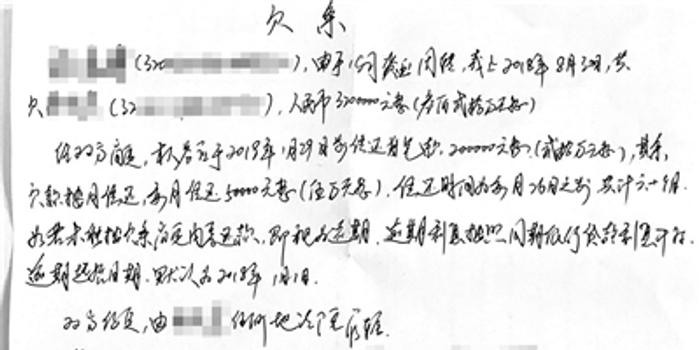 欠条
(320 ),由于公司资金周转,我止2018年8月3日,共
欠 (32 ),人民币320000元整(叁佰贰拾万元整)
经双方商定,本人名下于2019年1月29日前偿还首笔款200000元整(贰拾万元整),其余
欠款按月偿还,每月偿还50000元整(伍万元整),偿还时间为每月26日之前 共计六十个月
如若未能按欠条商定内容还款,即视为逾期,逾期利息按照同期银行贷款利息计算.
逾期起始日期,默认为2018年1月1日.
双方约定,由 所在地法院管辖.